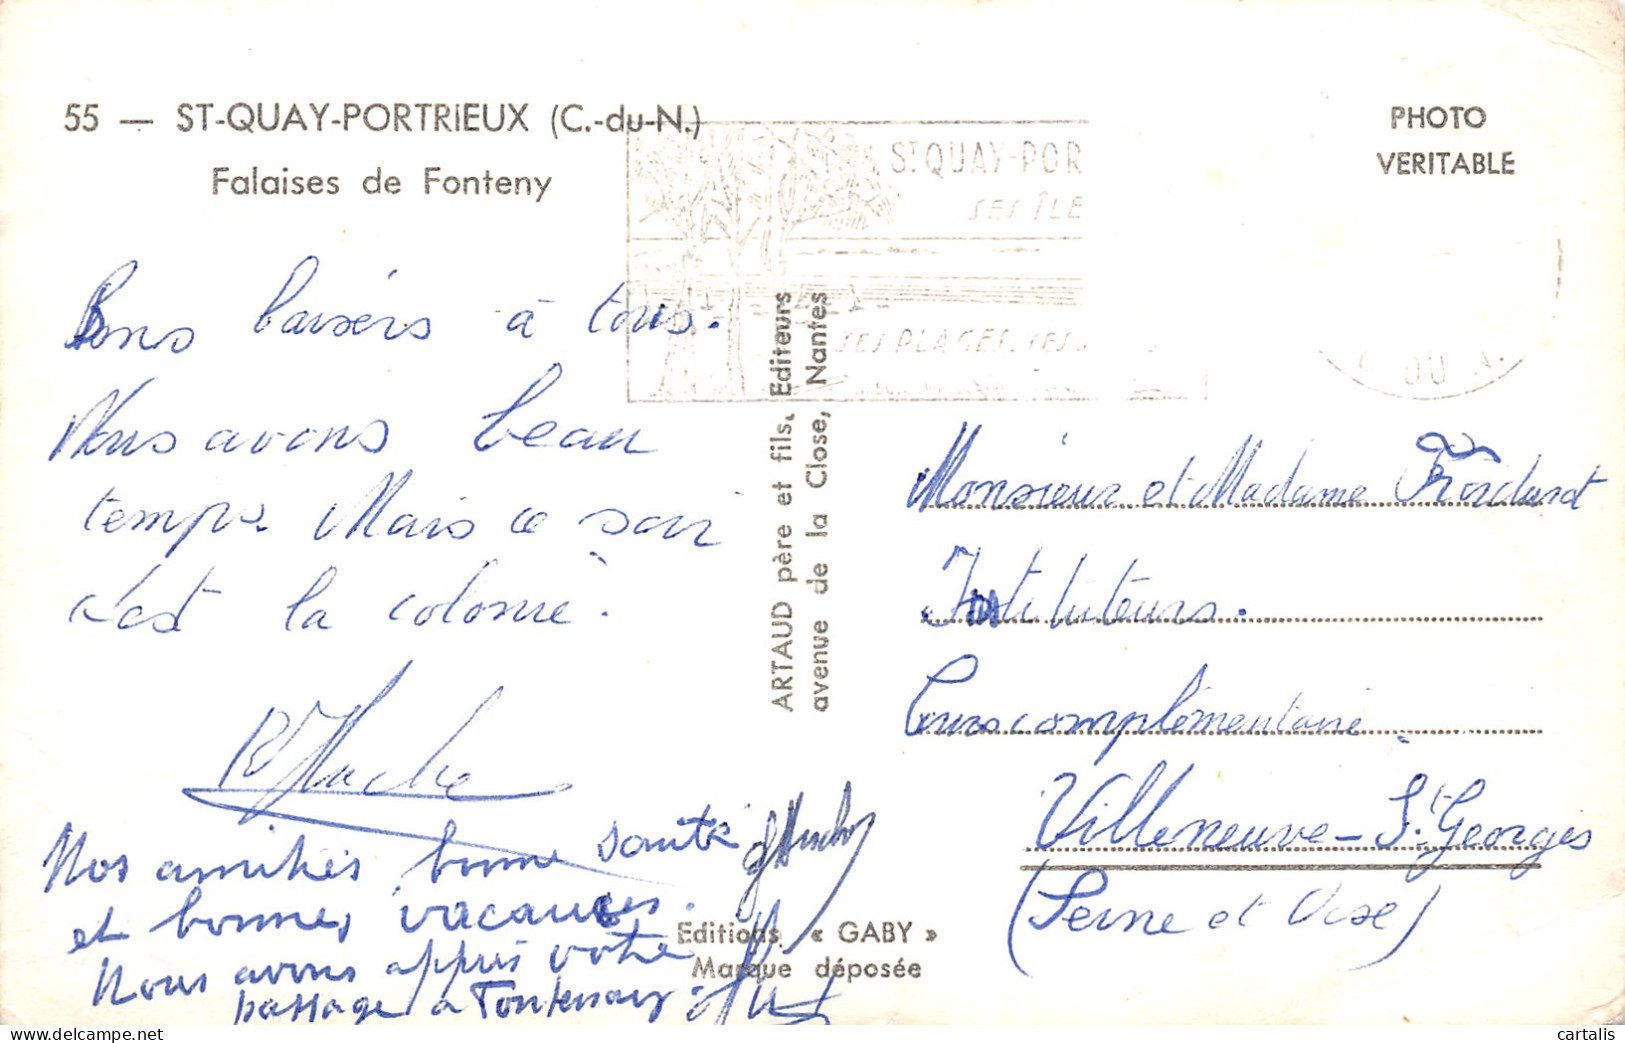 55 — ST-QUAY-PORTRIEUX (C.-du-N.)
Falaises de Fonteny
PHOTO
VERITABLE
ST QUAY-POR
SES ÎLE
SES PLAGES, SES
Bons baisers à tous.
Nous avons beau
temps. Mais ce soir
c'est la colonie.
Nos amitiés bonne santé
et bonnes vacances.
Nous avons appris votre
passage à Fontenay.
ARTAUD père et fils, Editeurs
avenue de la Close, Nantes
Editions « GABY »
Marque déposée
Monsieur et Madame
Instituteurs.
Cours complémentaire
Villeneuve-St Georges
(Seine et Oise)
cartalis